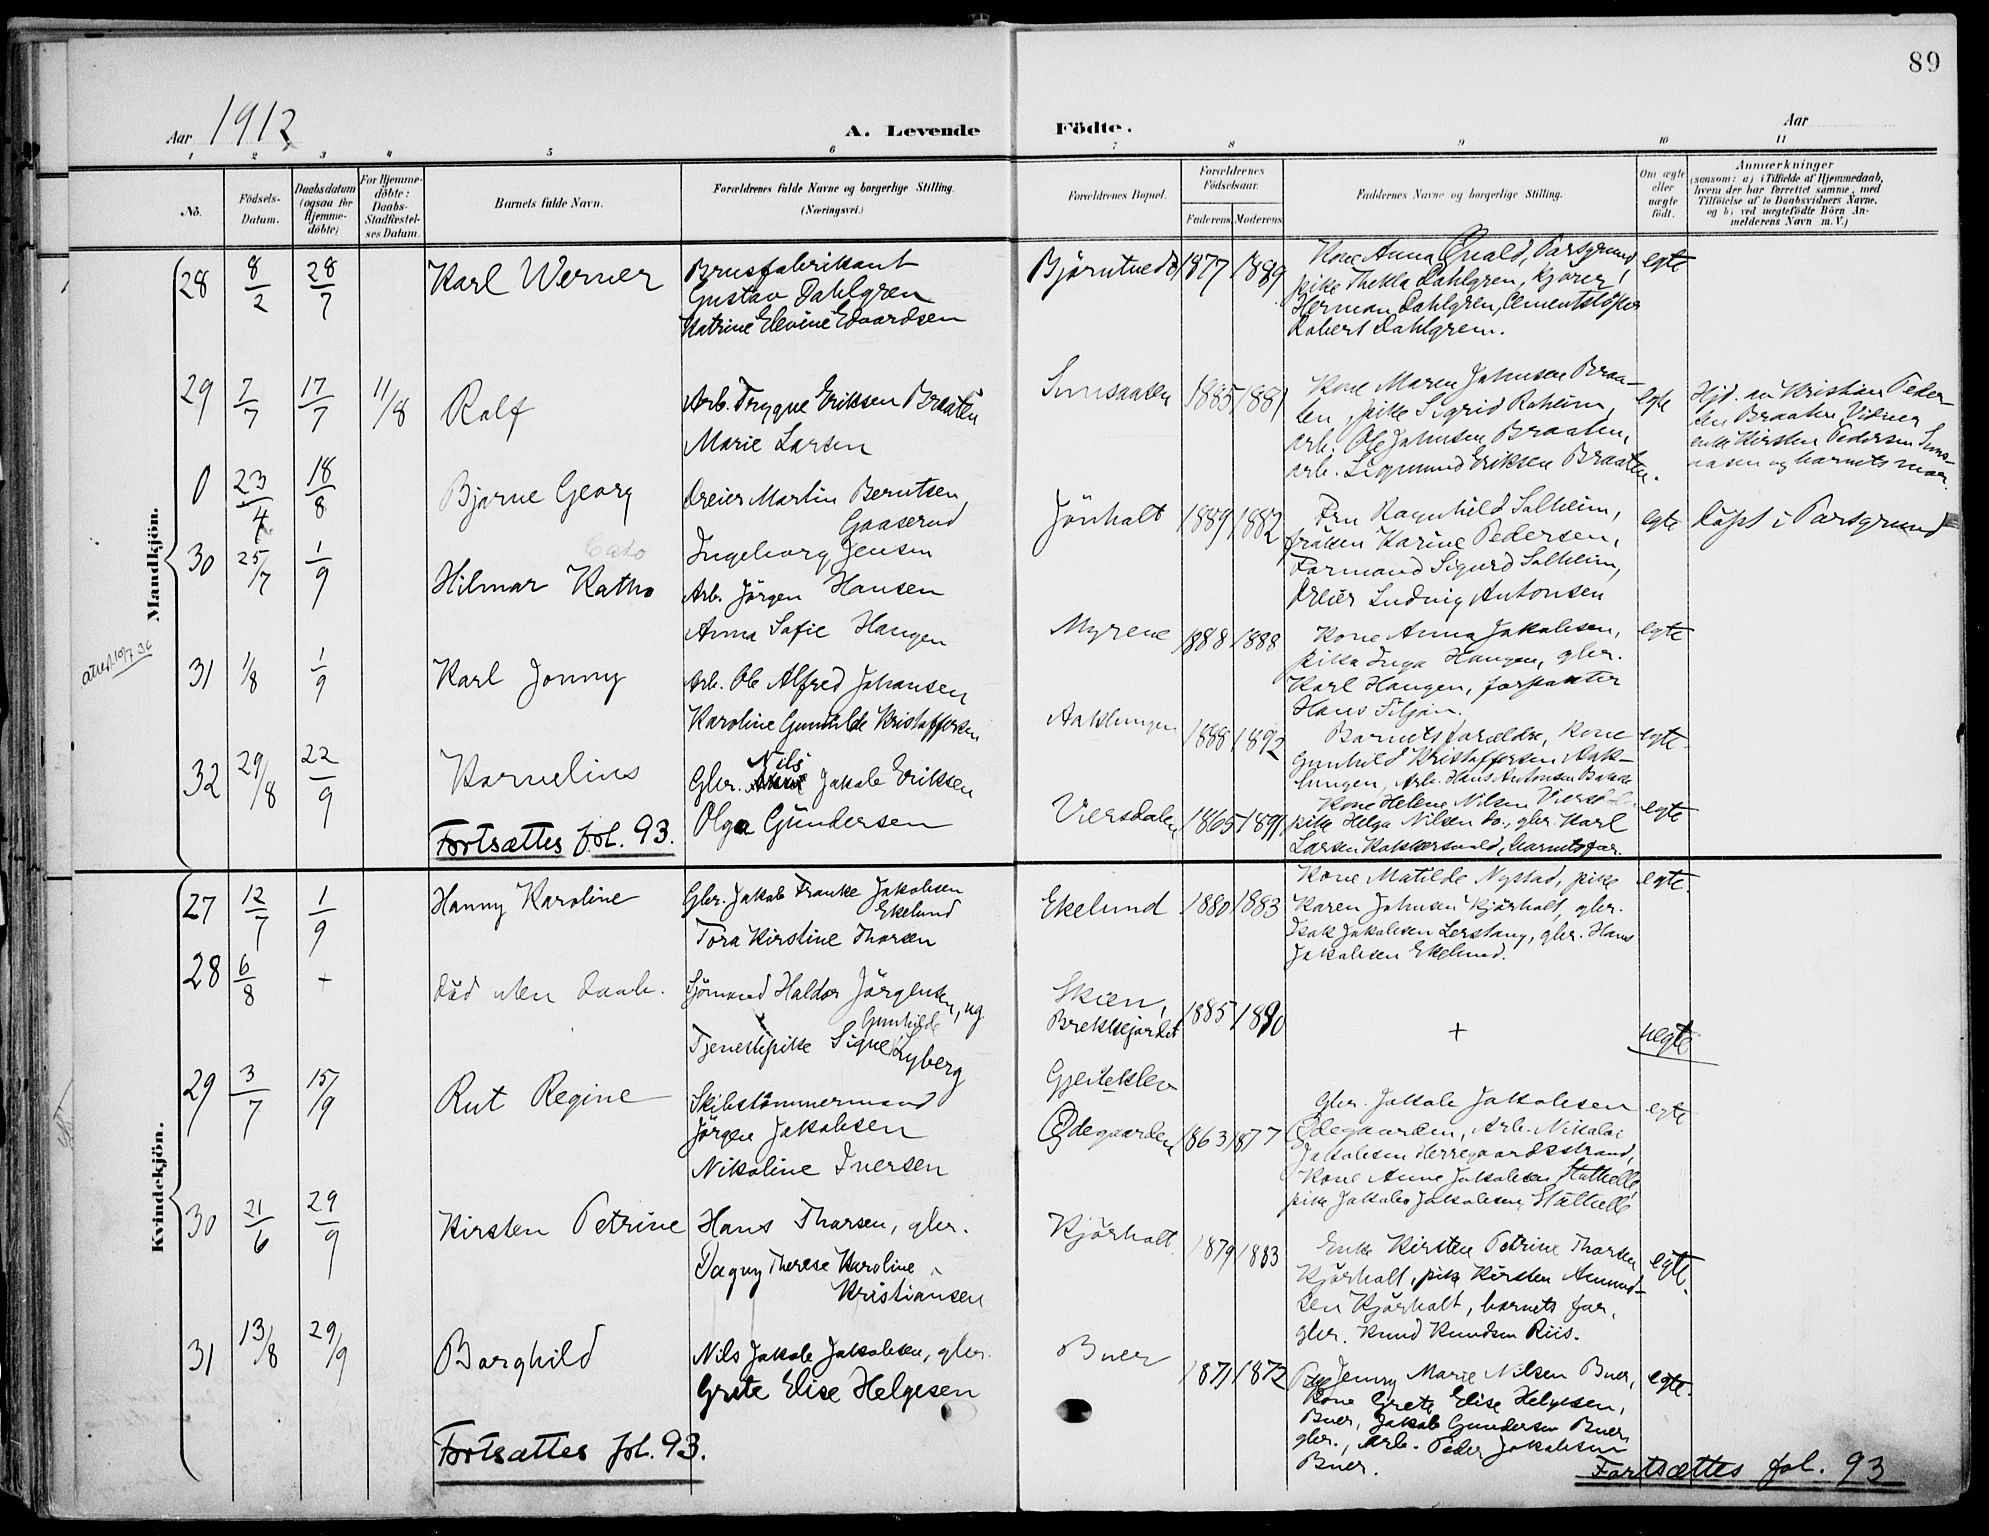 89
Aar 1912
A. Levende
Födte.
Aar
1 2 3 4 5 6 7 8 9 10 11
No.
Födsels-
Datum.
Daabsdatum
(ogsaa for
Hjemme-
döbte)
For Hjemme-
döbte:
Daabs-
Stadfæstel-
ses Datum.
Barnets fulde Navn.
Forældrenes fulde Navne og borgerlige Stilling.
(Næringsvei.)
Forældrenes Bopæl.
Forældrenes
Födselsaar.
Faderens
Moderens
Faddernes Navne og borgerlige Stilling.
Om ægte
eller
uægte
født.
Anmærkninger
(saasom: a) i Tilfælde af Hjemmedaab,
hvem der har forrettet samme, med
Tilföielse af to Daabsvidners Navne,
og b) ved uægtefödte Börn An-
melderens Navn m. V.)
Mandkjön.
28 8/2 28/7 Karl Werner
Brusfabrikant
Gustav Dahlgren
Katrine Elevine Edvardsen
Björntvedt 1877 1889
Kone Anna Qvald, Porsgrund,
pike Thekla Dahlgren, kjörer
Herman Dahlgren, Cementstöper
Robert Dahlgren.
egte
29 7/7 17/7 11/8 Rolf
Arb. Trygve Eriksen Braaten
Marie Larsen
1885 1881
Kone Maren Johnsen Braa-
ten, pike Sigrid Roheim,
arb. Ole Johnsen Braaten,
arb. Sigmund Eriksen Braaten.
egte
Hjd. av Kristian Peder-
sen Braaten. Vidner
enke Kirsten Pedersen
og barnets mor.
0 23/4 18/8 Bjarne Georg
Dreier Martin Berntsen
Gaaserud
Ingeborg Jensen
Jönholt 1889 1882
Fru Ragnhild Solheim,
fröken Karine Pedersen,
Formand Sigurd Solheim,
dreier Ludvig Antonsen
egte
Döpt i Porsgrund
30 25/7 1/9 Hilmar Katho
Cato
Arb. Jörgen Hansen
Anna Sofie Haugen
Myrene 1888 1888
Kone Anna Jakobsen,
pike Inga Haugen, gbr.
Karl Haugen, forpakter
Hans Siljan.
egte
31 1/8 1/9 Karl Jonny
Arb. Ole Alfred Johansen
Karoline Gunhilde Kristoffersen
Aaklungen 1888 1892
Barnets forældre, Kone
Gunhild Kristoffersen Aak-
lungen, Arb. Hans Antonsen
egte.
32 29/8 22/9 Kornelius
Nils
Gbr. Jakob Eriksen
Olga Gundersen
Viersdalen 1865 1891
Kone Helene Nilsen
pike Helga Nilsen do., gbr. Karl
Larsen barnets far.
egte
Fortsættes fol. 93.
Kvindekjön.
27 12/7 1/9 Hanny Karoline
Gbr. Jakob Franke Jakobsen
Ekelund
Tora Kirstine Thorsen
Ekelund 1880 1883
Kone Matilde Nystad, pike
Karen Johnsen Kjörholt, gbr.
Isak Jakobsen Lerstang, gbr. Hans
Jakobsen Ekelund.
egte.
28 6/8 + Död uten daab.
Sjömand Haldor Jörgensen, ug
Gunhilde
Tjenestepike Signe Lyberg
Skien,
Brekkejordet 1885 1890
+
uegte
Gjeteklev
29 3/7 15/9 Rut Regine
Skibstömmermand
Jörgen Jakobsen
Nikoline Iversen
Ödegaarden 1863 1877
Gbr. Jakob Jakobsen
Ödegaarden, Arb. Nikolai
Jakobsen Herregaardsstrand,
Kone Anne Jakobsen Stathelle,
pike Jakobsen, Stathelle
egte
30 21/6 29/9 Kirsten Petrine
Hans Thorsen, gbr.
Dagny Therese Karoline
Kristiansen
Kjörholt 1879 1883
Enke Kirsten Petrine Thorsen
Kjörholt, pike Kirsten Amund-
sen Kjörholt, barnets far,
gbr. Knud Knudsen Riis.
egte.
31 13/8 29/9 Borghild
Nils Jakob Jakobsen, gbr.
Grete Elise Helgesen
Buer 1871 1872
Jenny Marie Nilsen Buer,
Kone Grete Elise Helgesen,
Buer, Jakob Gundersen Buer,
gbr., Arb. Peder Jakobsen
Buer.
egte.
Fortsættes fol. 93.
Fortsættes fol. 93